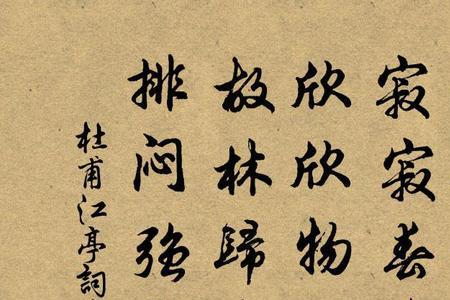 寂寂春
欣欣物
故林歸
排悶强
杜甫江亭詞